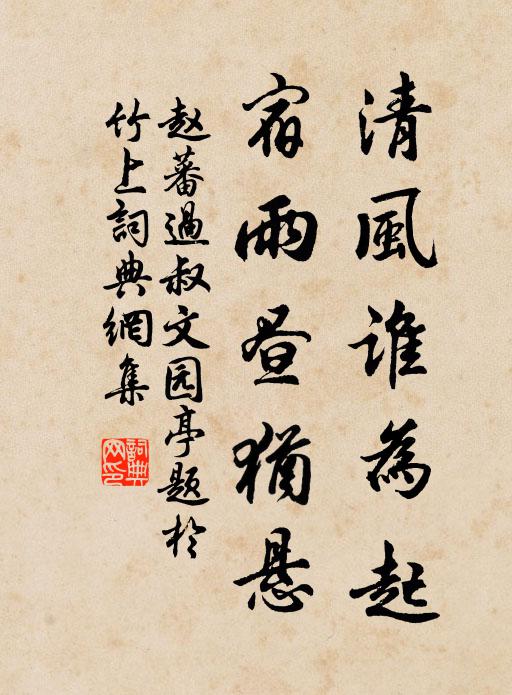 清風誰為起
宿雨晝猶懸
赵蕃過叔文园亭題於
竹上詞典網集
詞典网印